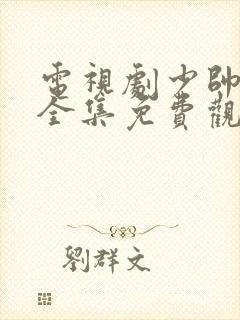 電視劇少帥
全集免費觀
劉群文